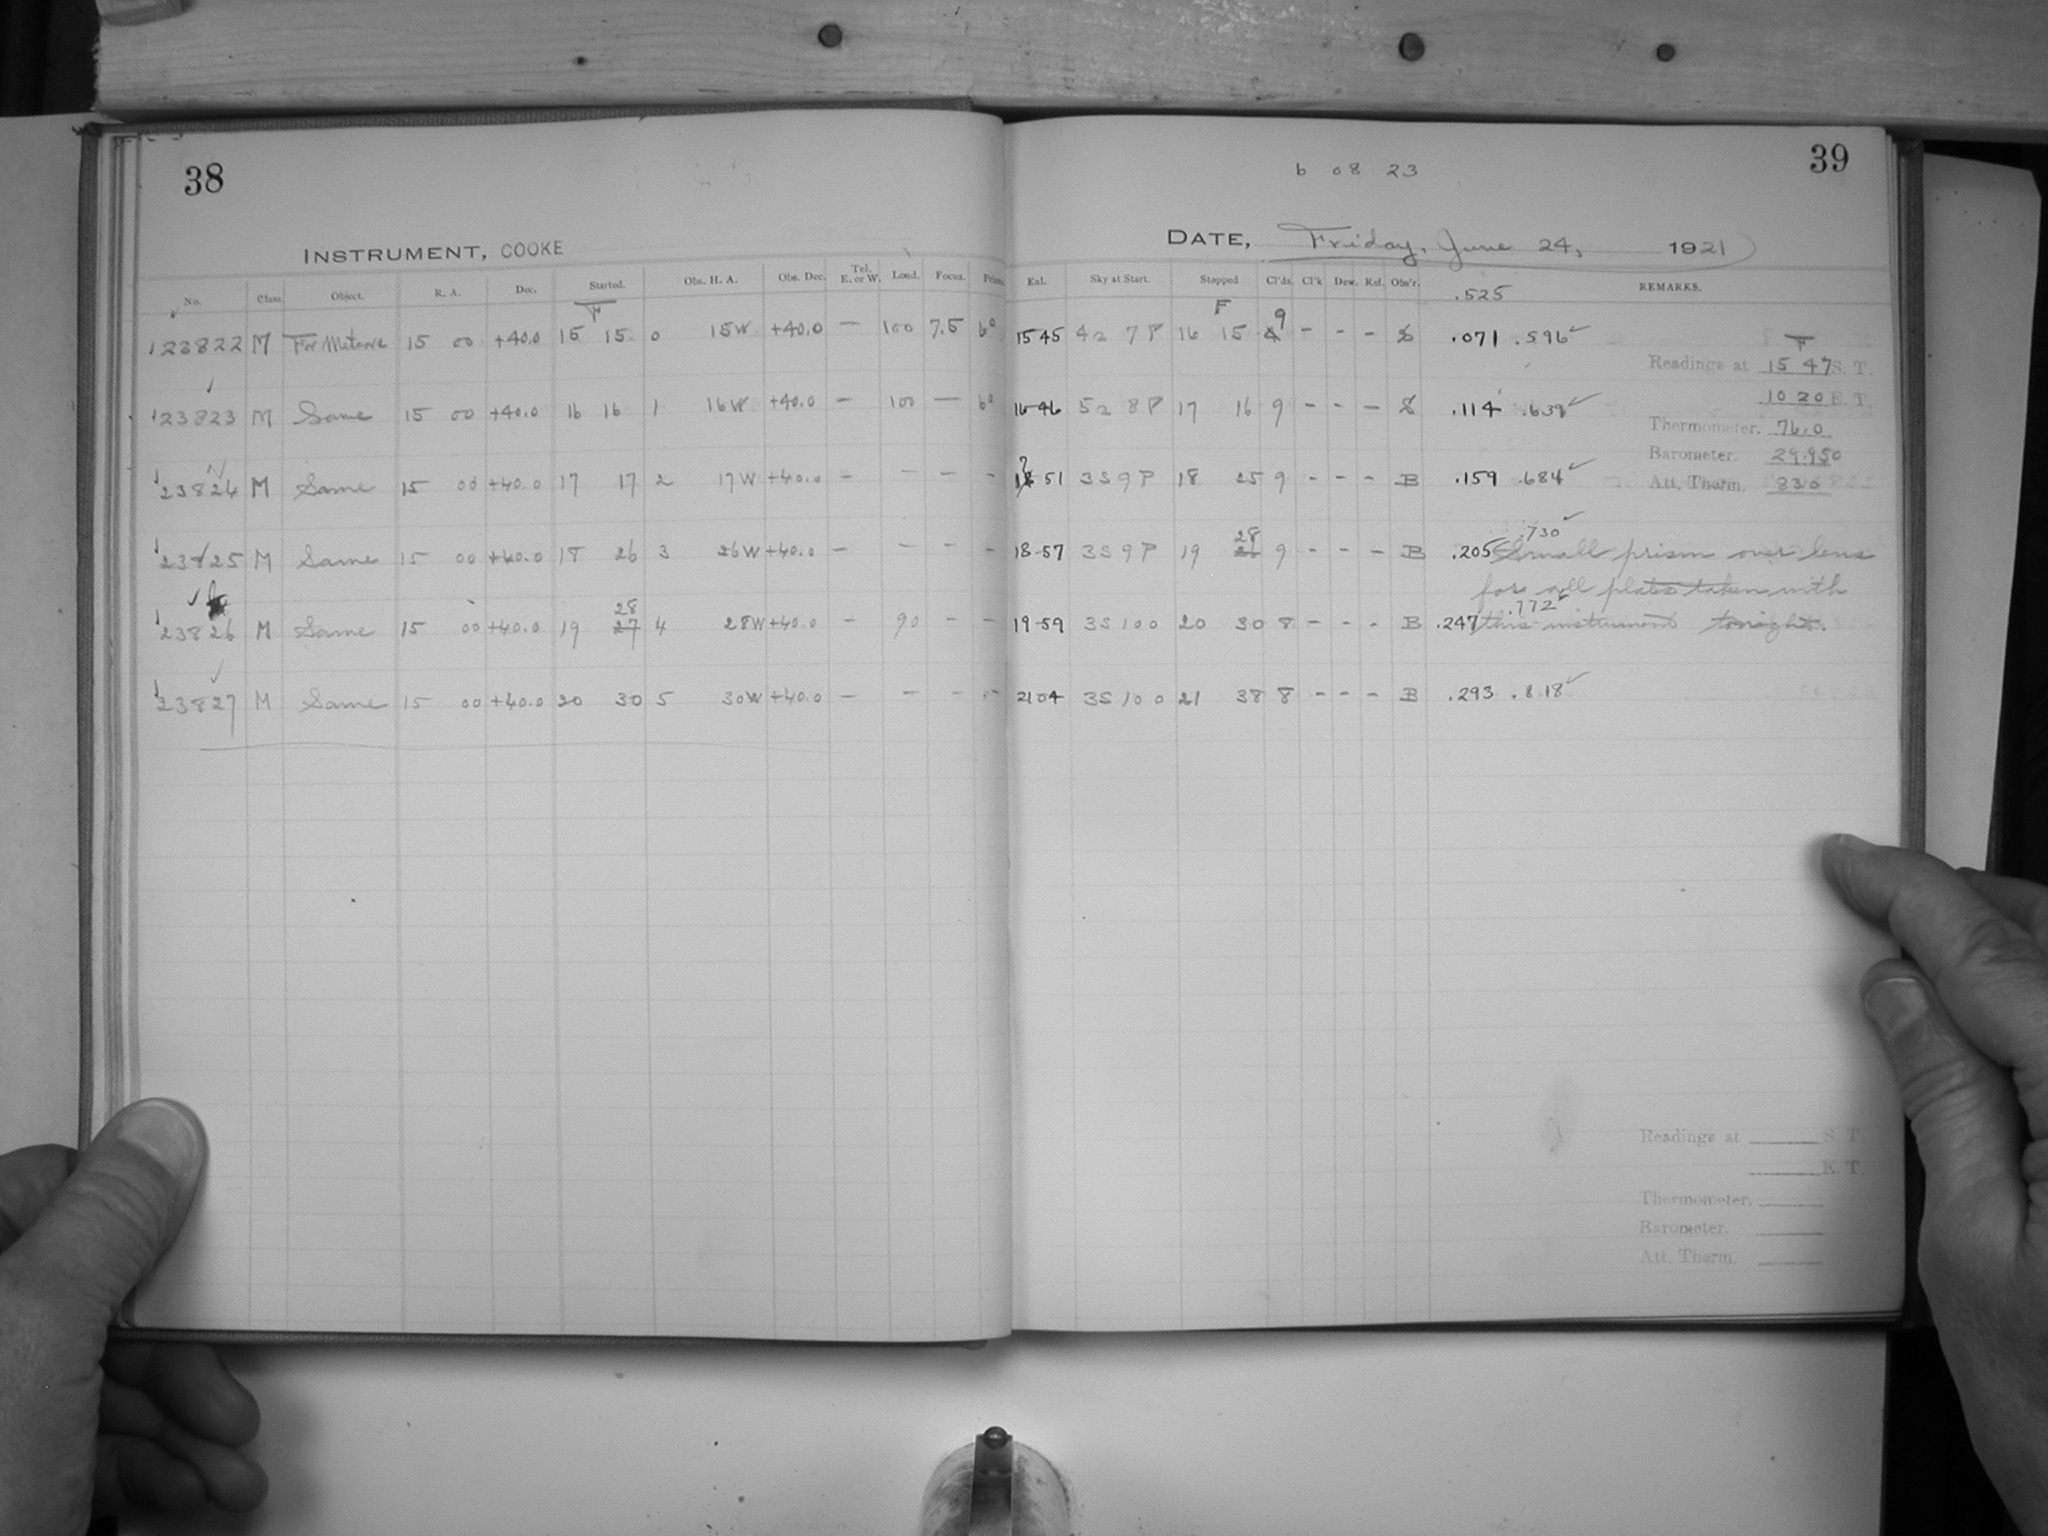 38
INSTRUMENT, COOKE
No. Class Object. R. A. Dec. Started. Obs. H. A. Obs. Dec. Tel. E. or W. Load. Focus. Prism
F
23822 M For Meteors 15 00 +40.0 15 15 0 15W +40.0 – 100 7.5 60
23823 M Same 15 00 +40.0 16 16 1 16W +40.0 – 100 –
23824 M Same 15 00 +40.0 17 17 2 17W +40.0 – – – –
23825 M Same 15 00 +40.0 18 26 3 26W +40.0 – – – –
28
23826 M Same 15 00 +40.0 19 27 4 28W +40.0 – 90 – –
23827 M Same 15 00 +40.0 20 30 5 30W +40.0 – – – –
39
6 08 23
DATE, Friday, June 24, 1921
Exl. Sky at Start. Stopped Cl'ds. Cl'k Dew. Ref. Obs'r. REMARKS.
.525
F 9
15 45 42 7P 16 15 – – – .071 .596
16-46 52 8P 17 16 9 – – – .114 .639
51 3S9P 18 25 9 – – – B .159 .684
28 .730
18-57 3S9P 19 26 9 – – – B .205 Small prism over lens
for all plates taken with
.772
19-59 3S100 20 30 8 – – – B .247 this instrument tonight.
2104 3S100 21 38 8 – – – B .293 .818
F
Readings at 15 47 S. T.
10 20 E. T.
Thermometer. 76.0
Barometer. 29.950
Att. Therm. 830
Readings at S. T
E. T.
Thermometer.
Barometer.
Att. Therm.